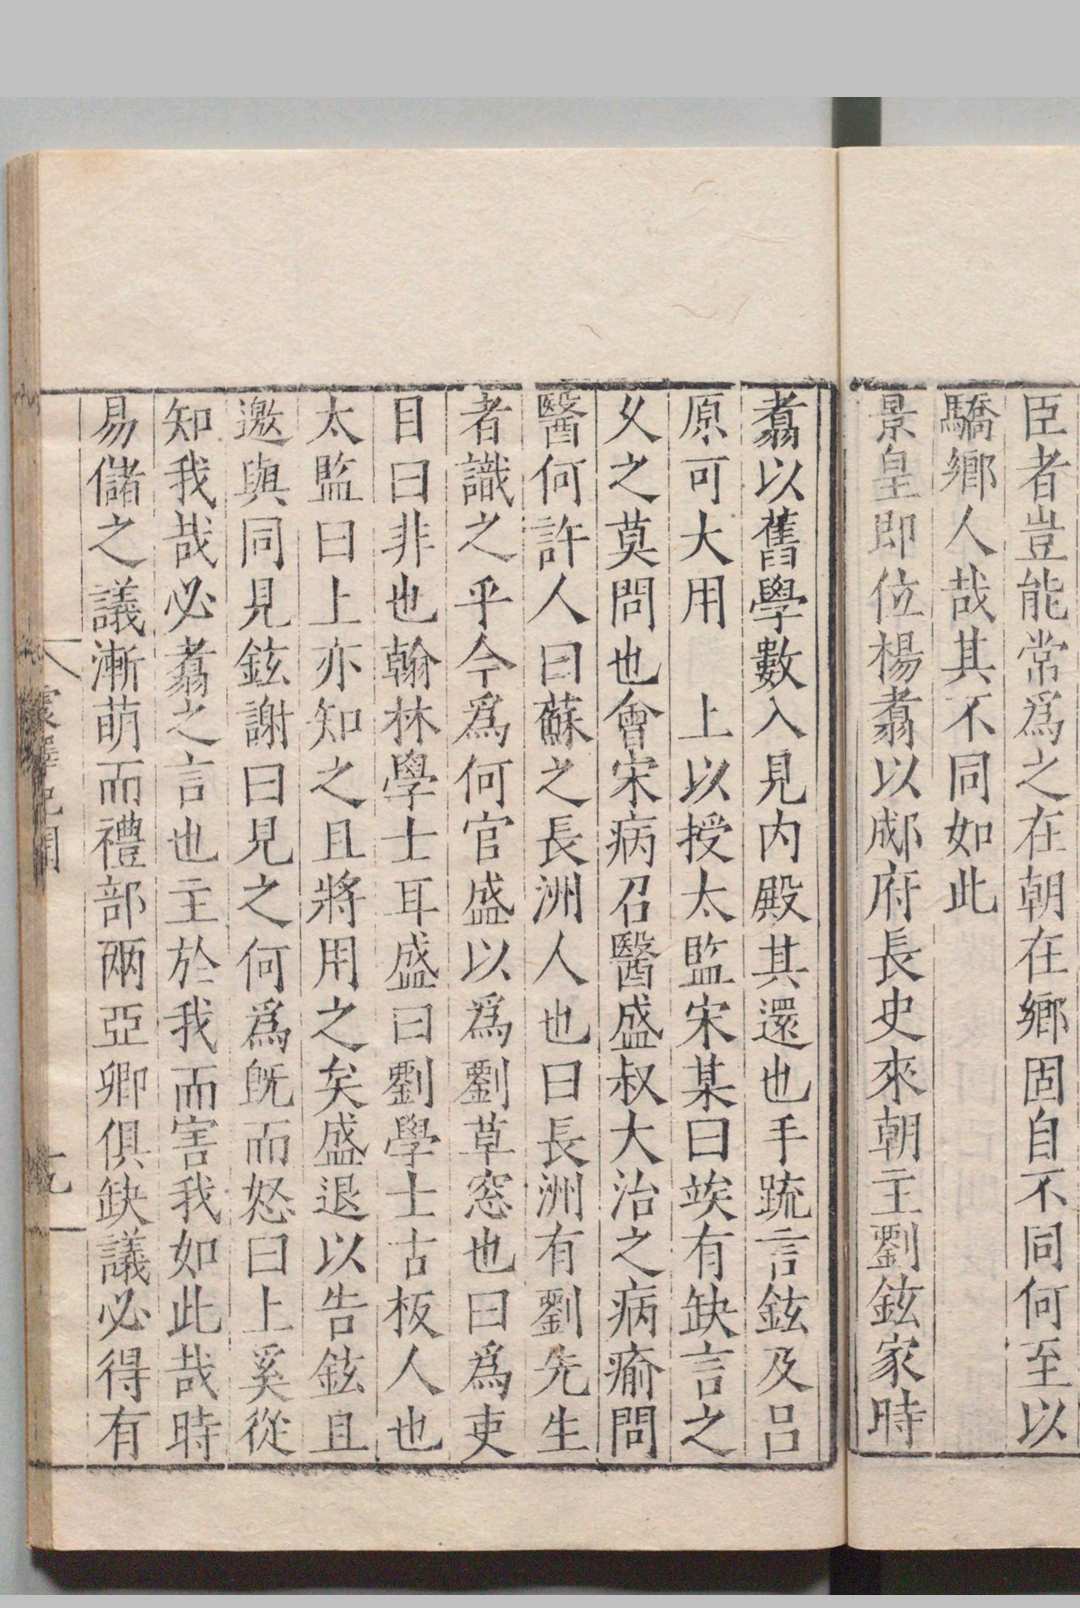 臣者豈能常爲之在朝在鄉固自不同何至以
驕鄉人哉其不同如此
景皇即位楊翥以郕府長史來朝主劉鉉家時
翥以舊學數入見内殿其還也手疏言鉉及呂
原可大用　上以授太監宋某曰竢有缺言之
久之莫問也會宋病召醫盛叔大治之病瘉問
醫何許人曰蘇之長洲人也曰長洲有劉先生
者識之乎今爲何官盛以爲劉草窓也曰爲吏
目曰非也翰林學士耳盛曰劉學士古板人也
太監曰上亦知之且將用之矣盛退以告鉉且
邀與同見鉉謝曰見之何爲旣而怒曰上奚從
知我哉必翥之言也主於我而害我如此哉時
易儲之議漸萌而禮部兩亞卿俱缺議必得有
震澤紀聞